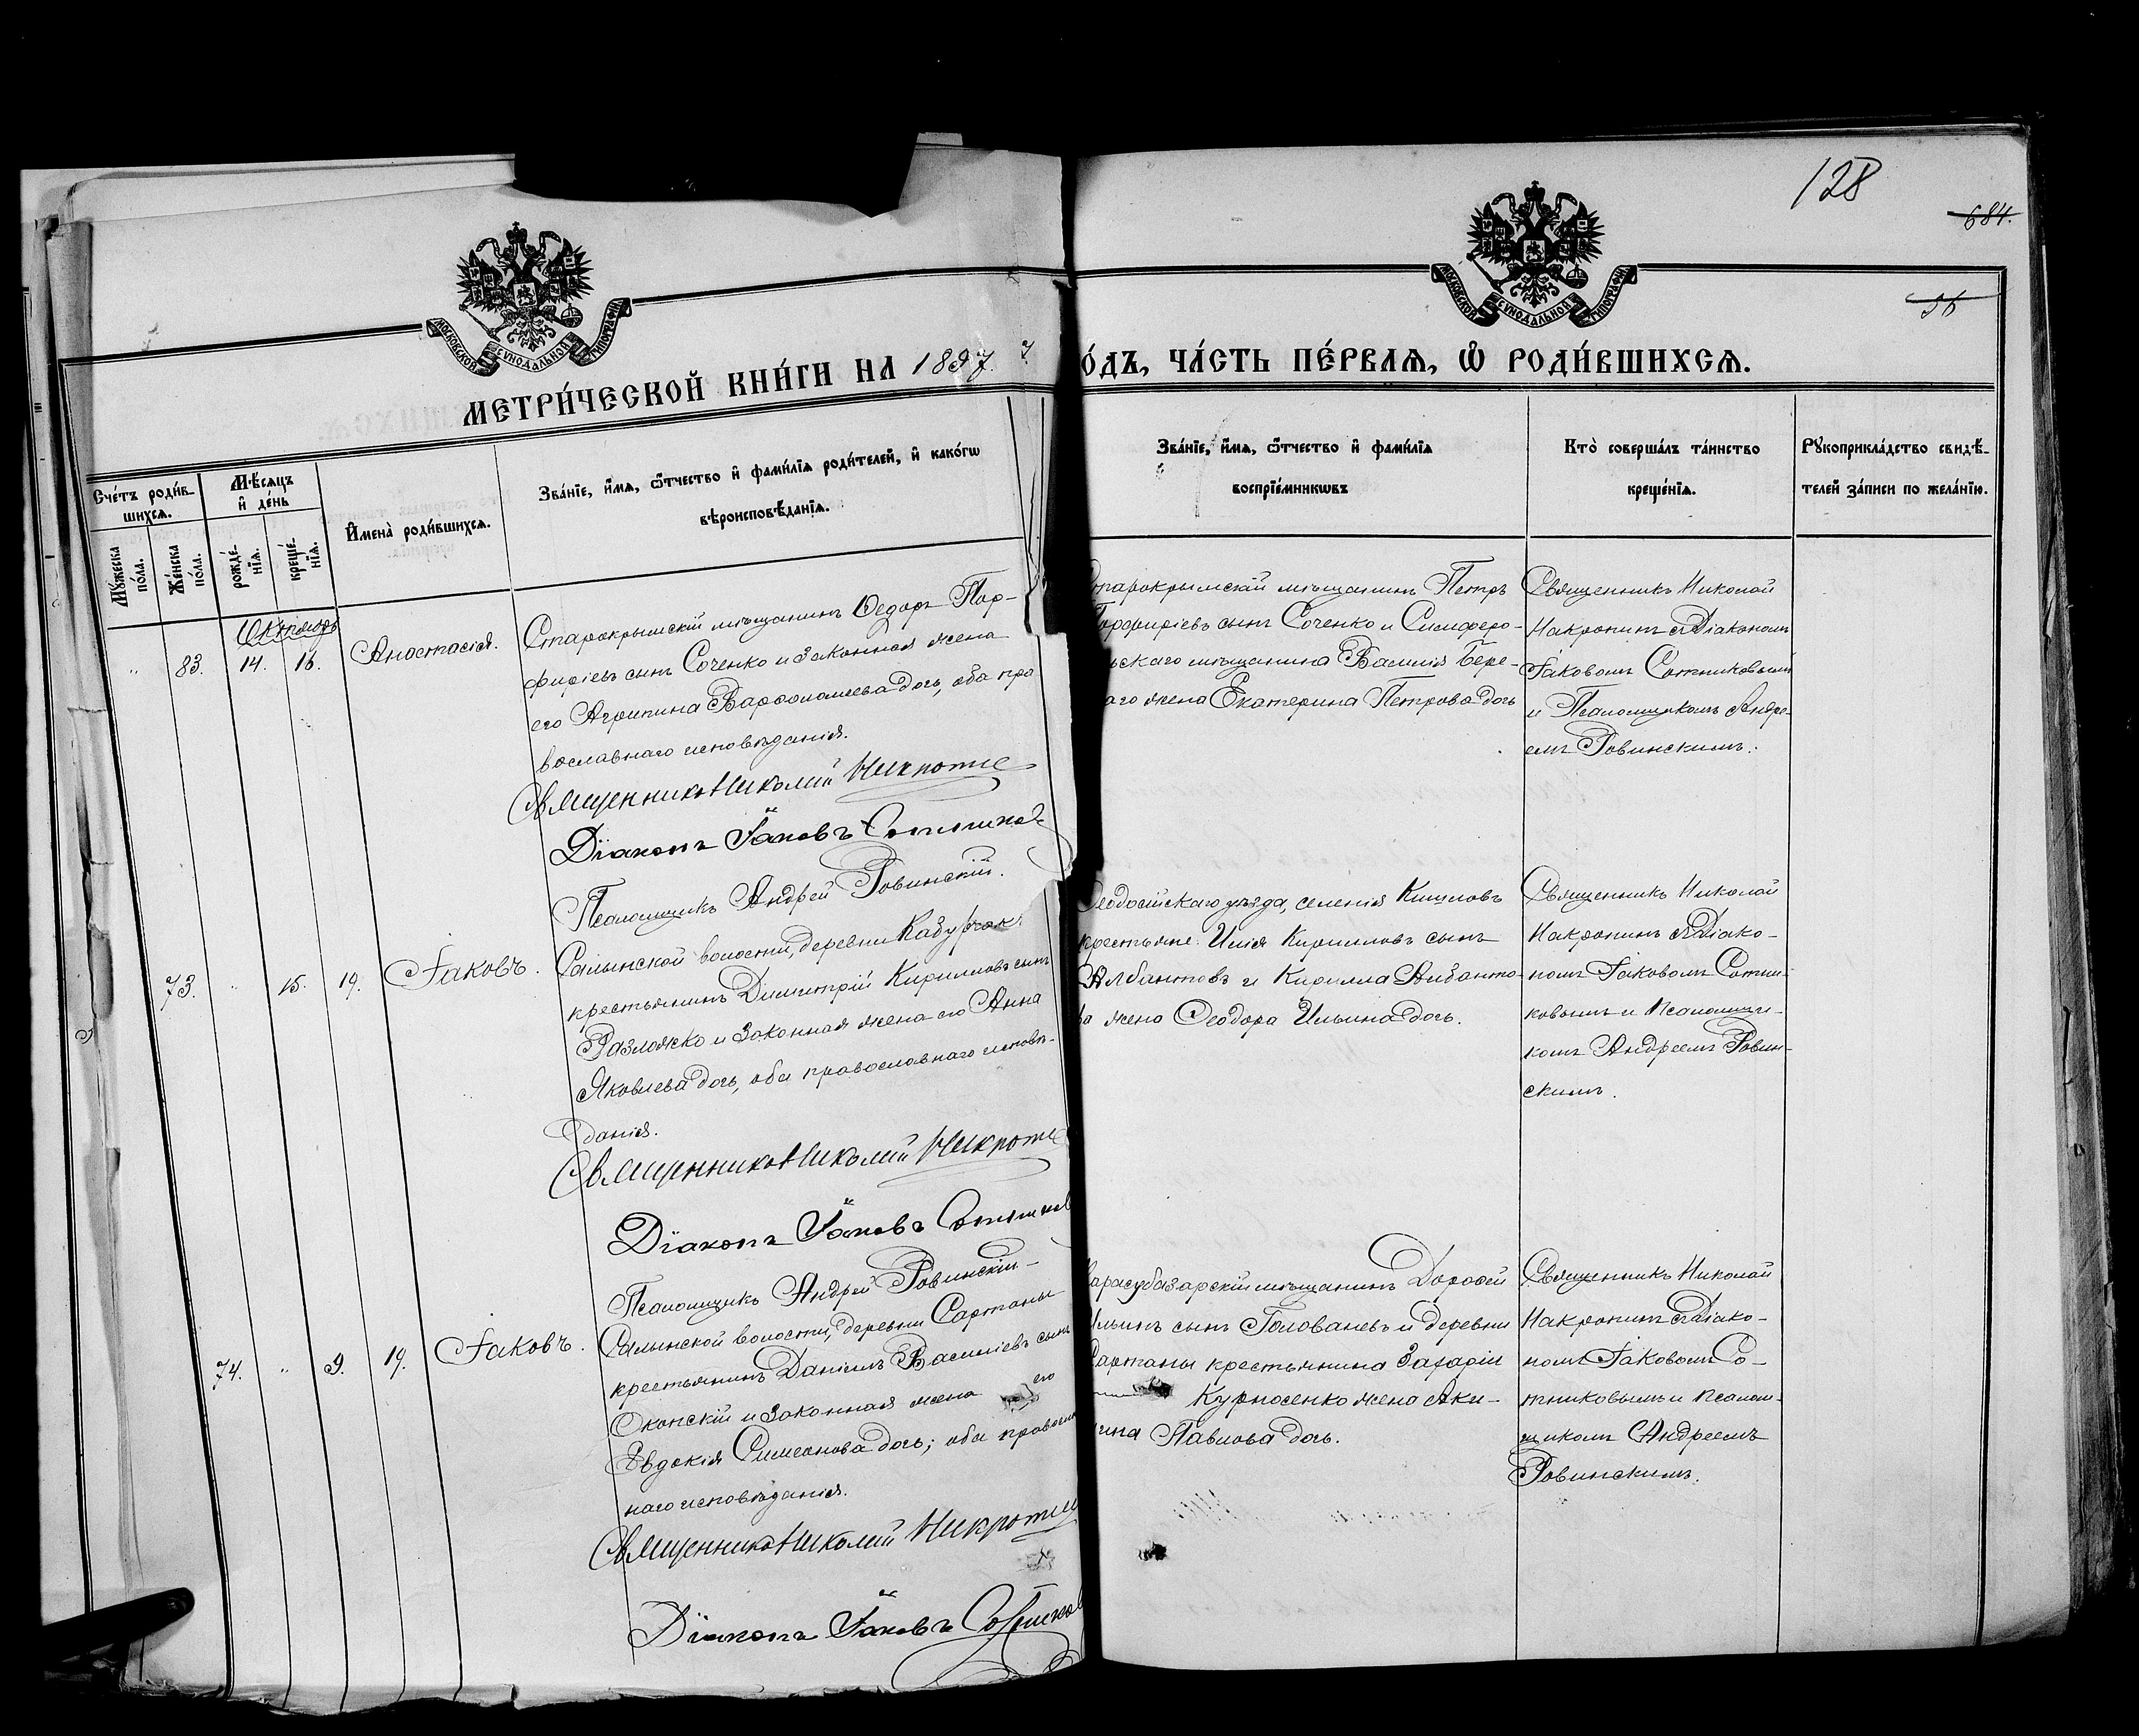 128
684.
56
МОСКОВСКОЙ СѴНОДАЛЬНОЙ ТИПОГРАФІИ
МОСКОВСКОЙ СѴНОДАЛЬНОЙ ТИПОГРАФІИ
МЕТРИ́ЧЕСКОЙ КНИ́ГИ НА 1897
О́ДЪ, ЧА́СТЬ ПЕ́РВАѦ, Ѡ РОДИ́ВШИХСѦ.
Сче́тъ роди́в-
шихсѧ.
Мѣ́сѧцъ
и де́нь
Мꙋ́жеска
по́ла.
Же́нска
по́ла.
рожде́-
нїѧ.
креще́-
нїѧ.
И́мена̀ роди́вшихсѧ.
Зва́нїе, и́мѧ, ѻ́тчество и фами́лїѧ роди́телей, и како́гѡ
вѣроисповѣ́данїѧ.
Зва́нїе, и́мѧ, ѻ́тчество и фами́лїѧ
воспрїе́мникѡвъ
Кто̀ соверша́лъ та́инство
креще́нїѧ.
Рꙋкоприкла́дство свидѣ́-
телей за́писи по жела́нїю.
Октябрь
„ 83. 14. 16. Анастасія.
Старокрымскій мѣщанинъ Ѳедоръ Пор-
фиріевъ сынъ Соченко и законная жена
его Агрипина Варѳоломеева дочь, оба пра
вославнаго исповѣданія.
Священникъ Николай
Діаконъ Іаковъ Сотников
Псаломщикъ Андрей Ровинскій.
старокрымскій мѣщанинъ Петръ
Порфиріевъ сынъ Соченко и Симферо-
льскаго мѣщанина Василія Бере-
аго жена Екатерина Петрова дочь
Священникъ Николай
Накропинъ съ Діакономъ
Іаковомъ Сотниковымъ
и Псаломщикомъ Андре-
емъ Ровинскимъ.
73. „ 15. 19. Іаковъ.
Салынской волости, деревни
крестьянинъ Димитрій Кирилловъ сынъ
Разложко и законная жена его Анна
Яковлева дочь, оба православнаго исповѣ-
данія.
Священникъ Николай
Діаконъ Іаковъ Сотников
Псаломщикъ Андрей Ровинскій
Ѳеодосійскаго уѣзда, селенія Кишлавъ
крестьяне: Илія Кирилловъ сынъ
Албантовъ и Кирилла Албанто-
ва жена Ѳеодора Ильина дочь.
Священникъ Николай
Накропинъ съ Діако-
номъ Іаковомъ Сотни-
ковымъ и Псаломщи-
комъ Андреемъ Ровин-
скимъ.
74. „ 9. 19. Іаковъ.
Салынской волости, деревни Сартаны
крестьянинъ Даніилъ Василіевъ сынъ
Оконскій и законная жена его
Евдокія Симеонова дочь; оба православ
наго исповѣданія.
Священникъ Николай
Діаконъ Іаковъ Сотников
Карасубазарскій мѣщанинъ Дороѳей
Ильинъ сынъ Голованевъ и деревни
Сартаны крестьянина Захаріи
Курносенко жена Аки-
лина Павлова дочь.
Священникъ Николай
Накропинъ съ Діако-
номъ Іаковомъ Со-
тниковымъ и Псалом-
щикомъ Андреемъ
Ровинскимъ.